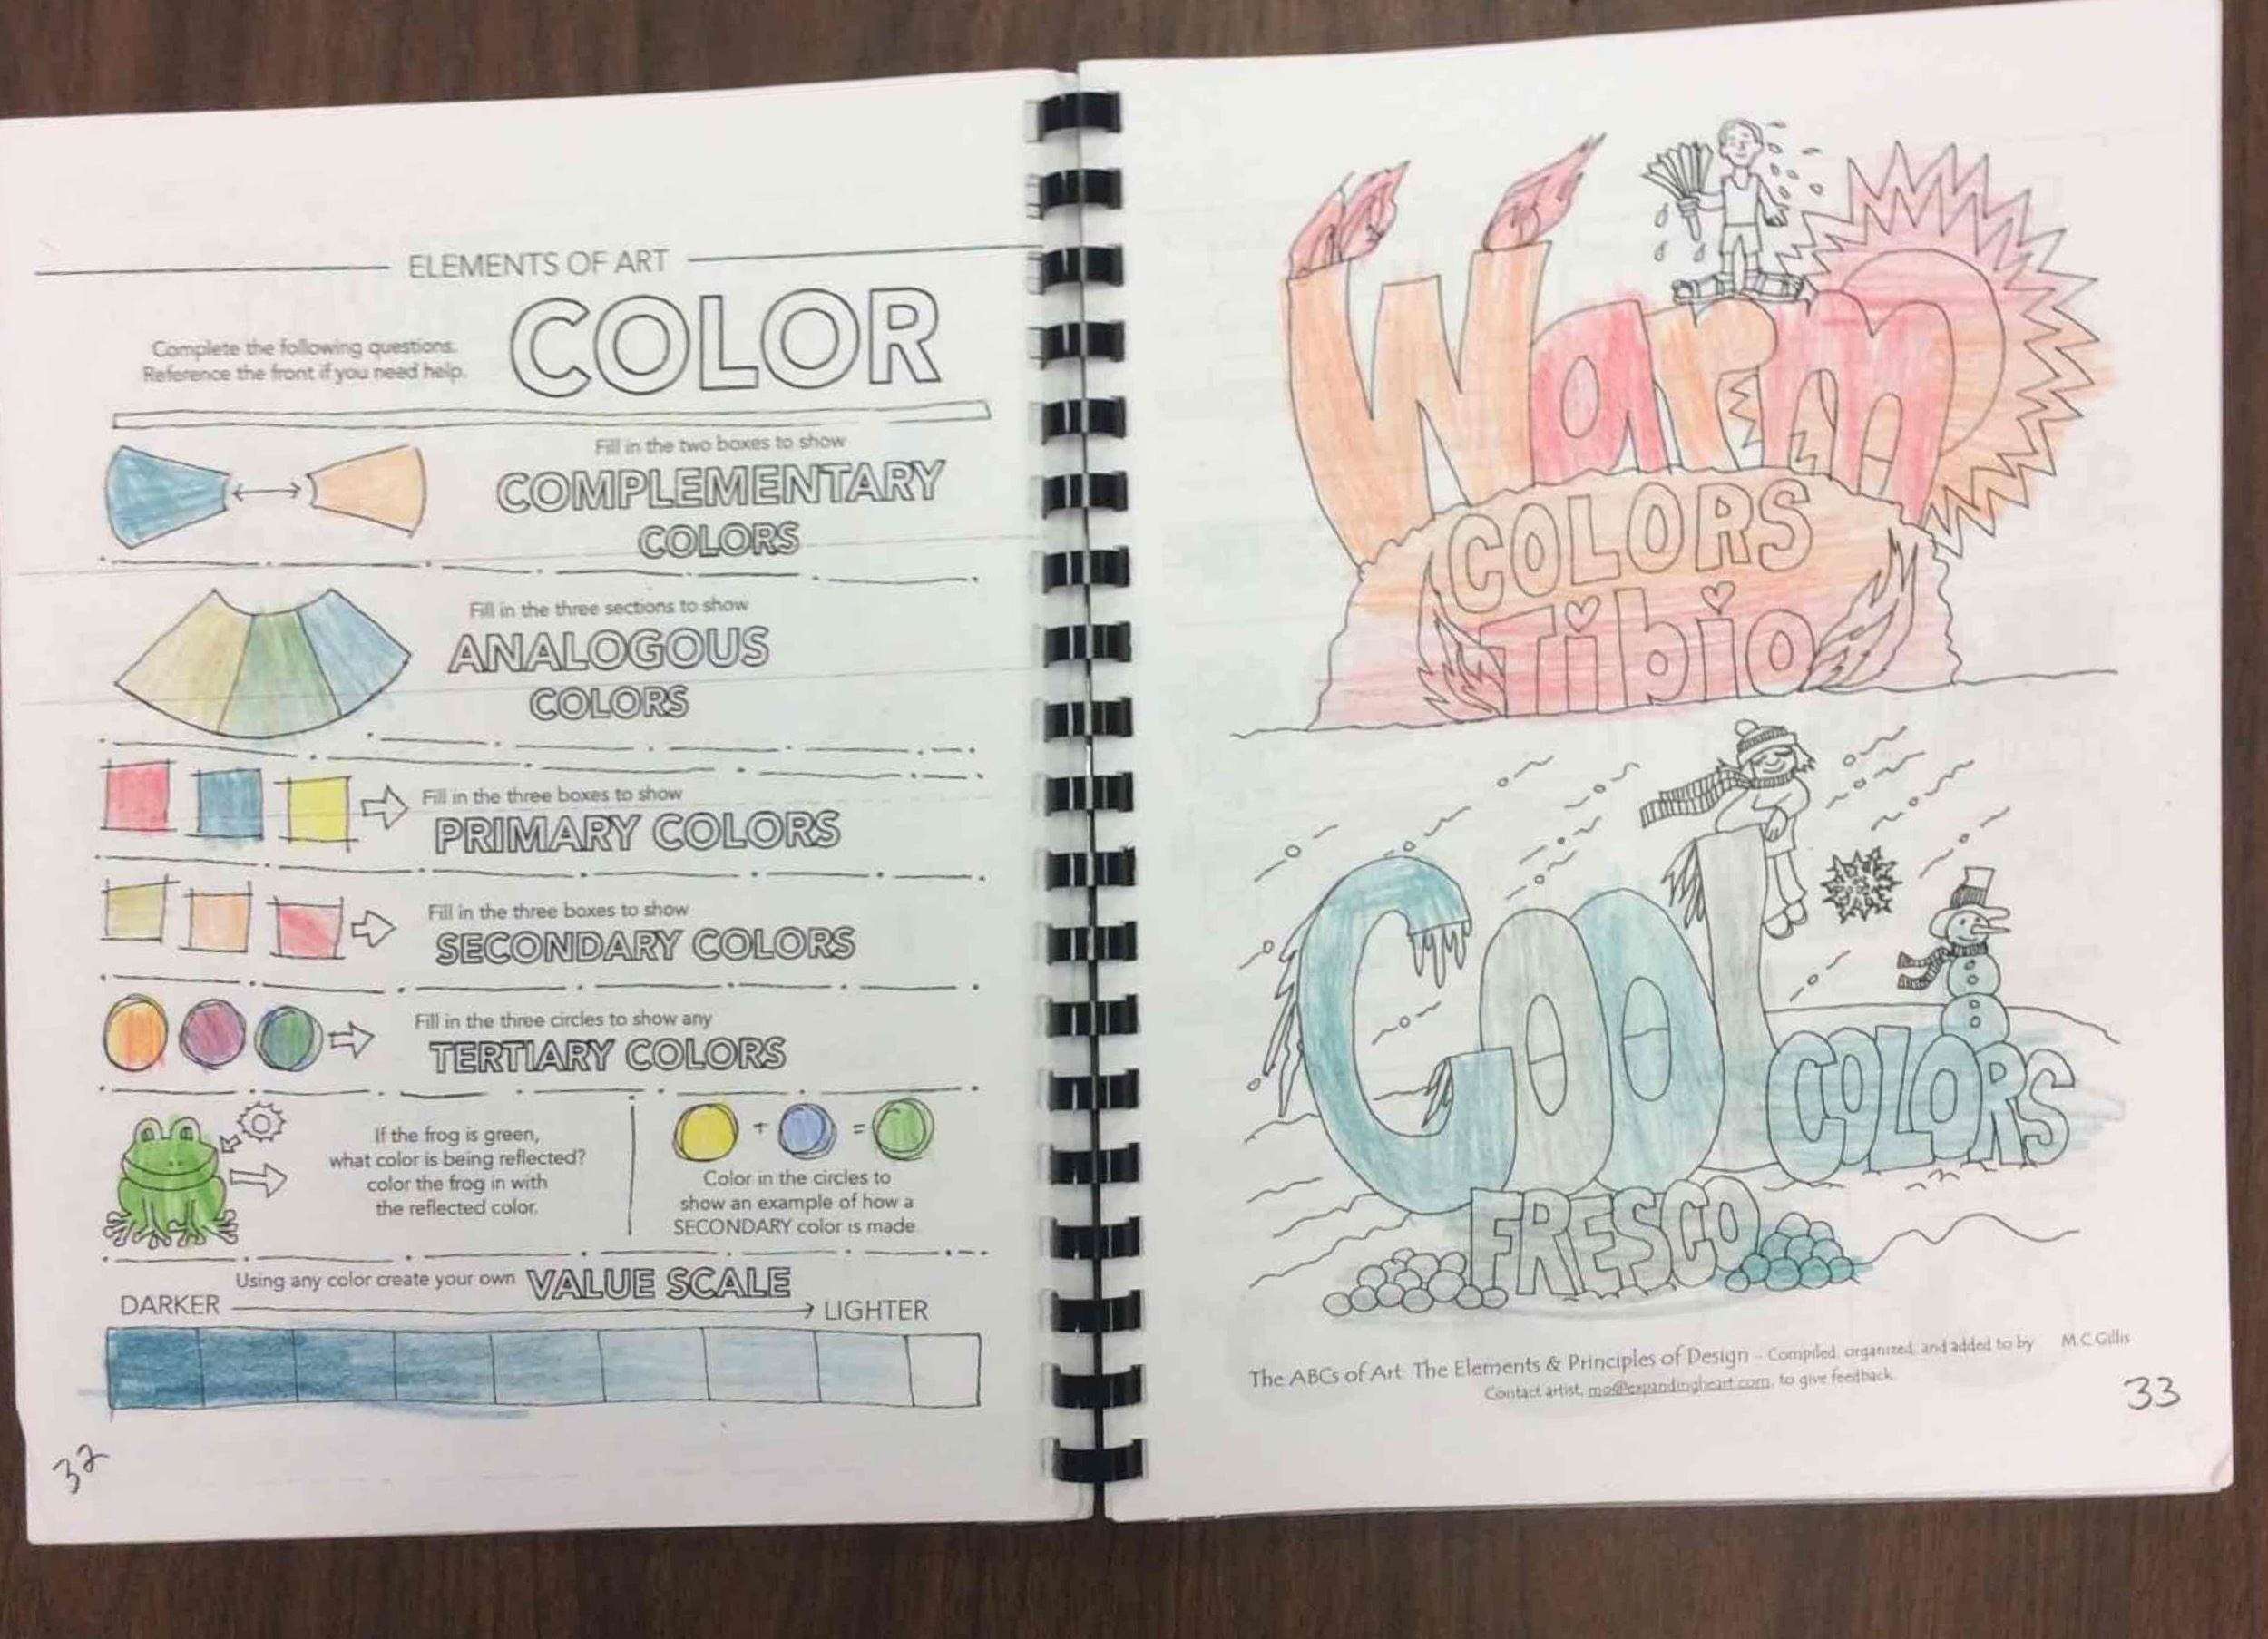 ELEMENTS OF ART
COLOR
Complete the following questions.
Reference the front if you need help.
Fill in the two boxes to show
COMPLEMENTARY
COLORS
Fill in the three sections to show
ANALOGOUS
COLORS
Fill in the three boxes to show
PRIMARY COLORS
Fill in the three boxes to show
SECONDARY COLORS
Fill in the three circles to show any
TERTIARY COLORS
If the frog is green,
what color is being reflected?
color the frog in with
the reflected color.
+ =
Color in the circles to
show an example of how a
SECONDARY color is made.
Using any color create your own VALUE SCALE
DARKER LIGHTER
32
Warm
COLORS
Tibio
COOL
COLORS
FRESCO
The ABCs of Art The Elements & Principles of Design - Compiled, organized, and added to by M.C.Gillis
Contact artist, mo@expandingheart.com, to give feedback.
33